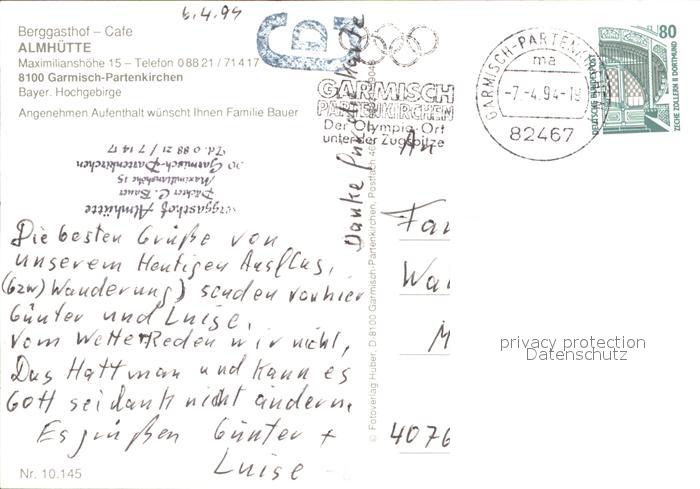 6.4.94
Berggasthof – Cafe
ALMHÜTTE
Maximilianshöhe 15 – Telefon 0 88 21 / 7 14 17
8100 Garmisch-Partenkirchen
Bayer. Hochgebirge
Angenehmen Aufenthalt wünscht Ihnen Familie Bauer
Berggasthof Almhütte
Pächter C. Bauer
Maximilianshöhe 15
Garmisch-Partenkirchen
Tel. 0 88 21 / 7 14 17
Die besten Grüße von
unserem Heutigen Ausflug,
(bzw) Wanderung) senden von hier
Günter und Luise.
Vom Wetter Reden wir nicht,
Das Hatt man und kann es
Gott sei dank nicht ändern.
Es grüßen Günter +
Luise
Nr. 10.145
Danke
Karte
© Fotoverlag Huber, D 8100 Garmisch-Partenkirchen, Postfach
GARMISCH
PARTENKIRCHEN
Der Olympia-Ort
unter der Zugspitze
GARMISCH-PARTENKIRCHEN
ma
-7.-4.94-18
82467
80
DEUTSCHE BUNDESPOST
ZECHE ZOLLERN II DORTMUND
An
Fa
Wa
M
4076
privacy protection
Datenschutz